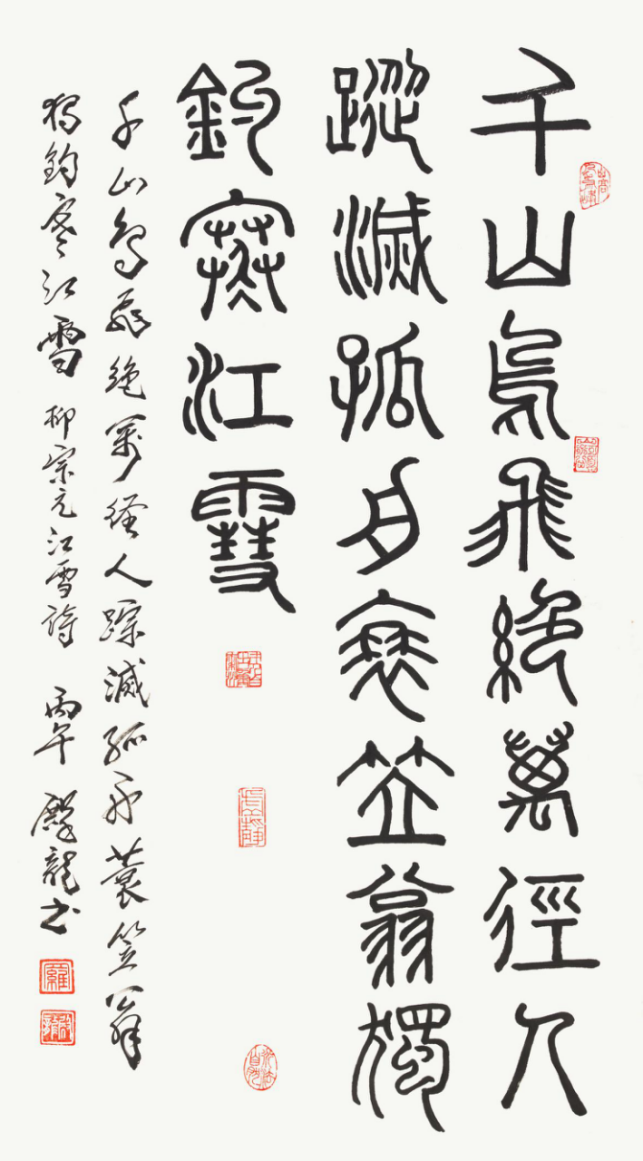 千山鳥飛絕萬徑人
蹤滅孤舟蓑笠翁獨
釣寒江雪
千山鳥飛絕萬徑人踪滅孤舟蓑笠翁
獨釣寒江雪 柳宗元江雪詩 丙午 龍書